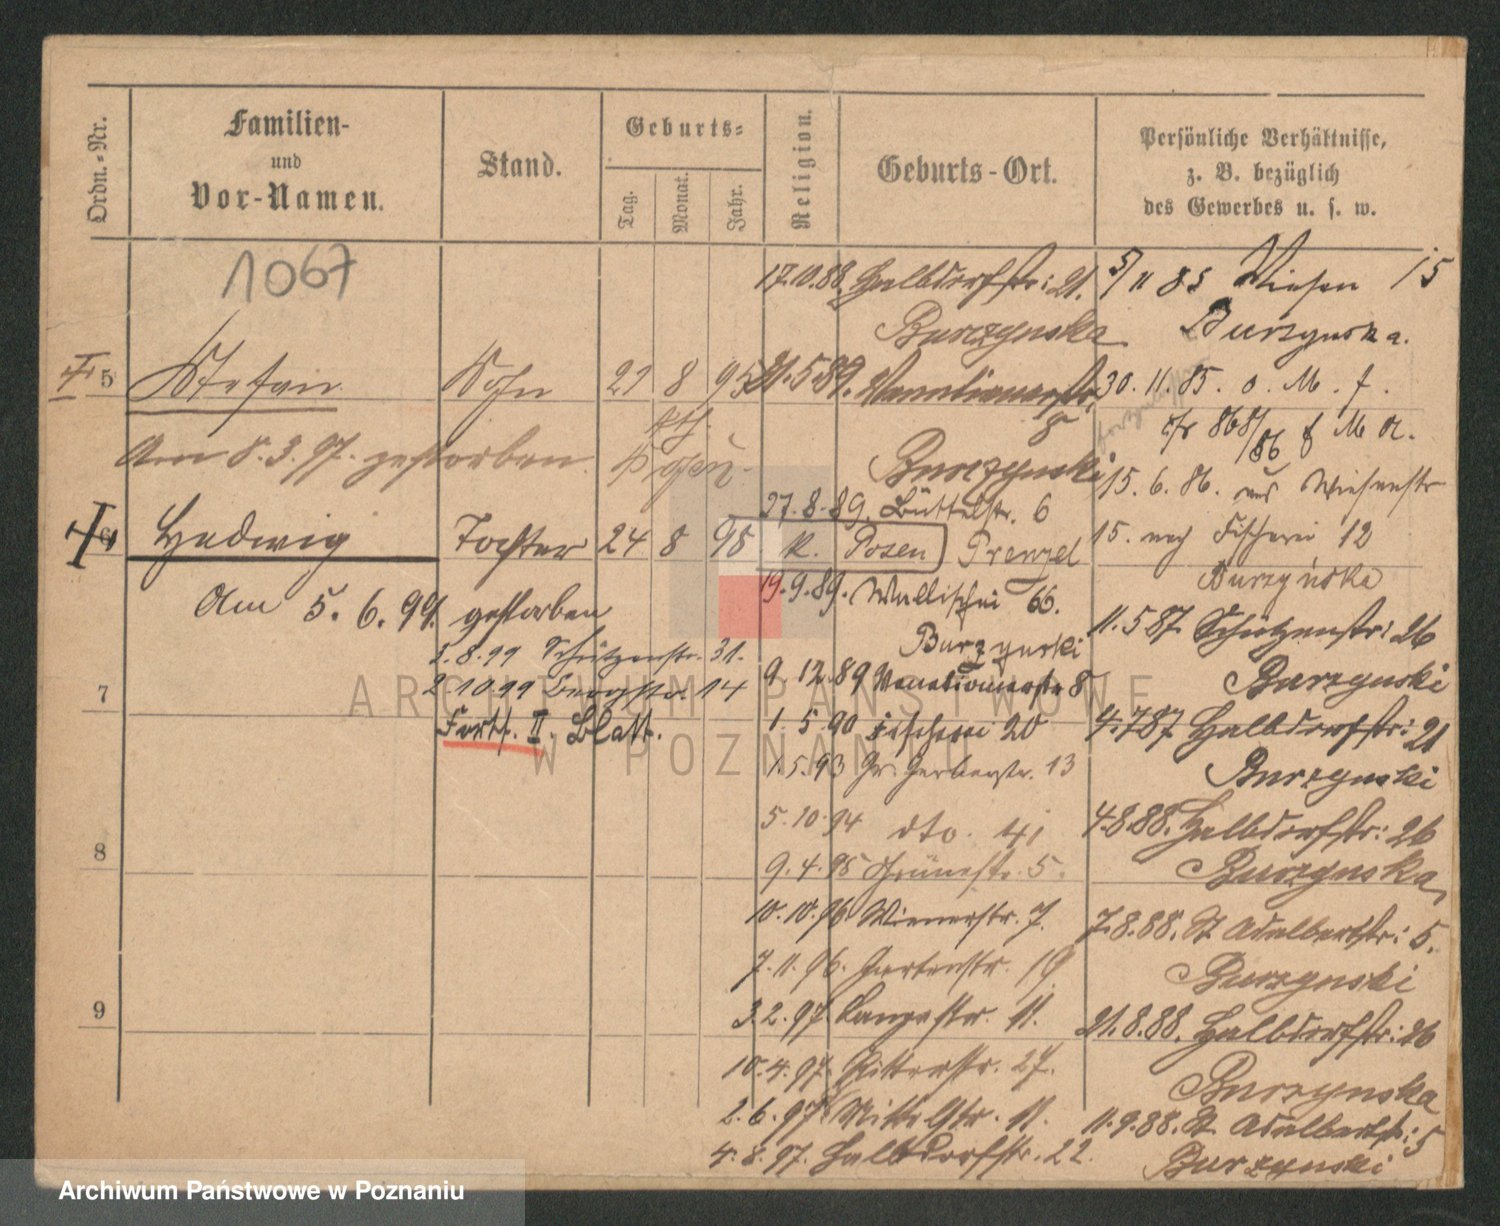 Ordn.-Nr.
Familien-
und
Vor-Namen.
Stand.
Geburts-
Tag.
Monat.
Jahr.
Religion.
Geburts-Ort.
Persönliche Verhältnisse,
z. B. bezüglich
des Gewerbes u. s. w.
1067
5 Stefan Sohn 29 8 95
Am 8.3.97. gestorben.
6 Hedwig Tochter 24 8 98 k. Posen
Am 5.6.99. gestorben
5.8.99 Schützenstr. 31.
2.10.99 Bergstr. 14
Forts. II. Blatt.
7
8
9
17.10.88. Halbdorfstr: 21.
Burczynska
21.5.89. Venetianerstr.
8
Burczynski
27.8.89. Büttelstr. 6
Prenzel
19.9.89. Wallischei 66.
Burzynski
9.12.89 Venetianerstr 8
1.5.90 Fischerei 20
1.5.93 Gr. Gerberstr. 13
5.10.94 dto. 41
9.4.95 Grünestr. 5.
10.10.96 Wienerstr. 7.
7.11.96. Gartenstr. 19
3.2.97 Langestr. 11.
10.4.97. Ritterstr. 27.
2.6.97 Mittelstr. 11.
4.8.97. Halbdorfstr. 22.
5/11 85 Wiesen 15
Burzynska.
30.11.85. o. M. f.
868/86 f M A.
15.6.86. aus Wiesenstr
15. nach Fischerei 12
Burzyńska
11.5.87. Schützenstr: 26
Burzynski
4.7.87 Halbdorfstr: 21
Burzynski
4.8.88. Halbdorfstr: 26
Burzynska
7.8.88. St Adalbertstr: 5.
Burzynski
21.8.88. Halbdorfstr: 26
Burzynska
11.9.88. St. Adalbertstr: 5
Burzynski
ARCHIWUM PAŃSTWOWE
W POZNANIU
Archiwum Państwowe w Poznaniu